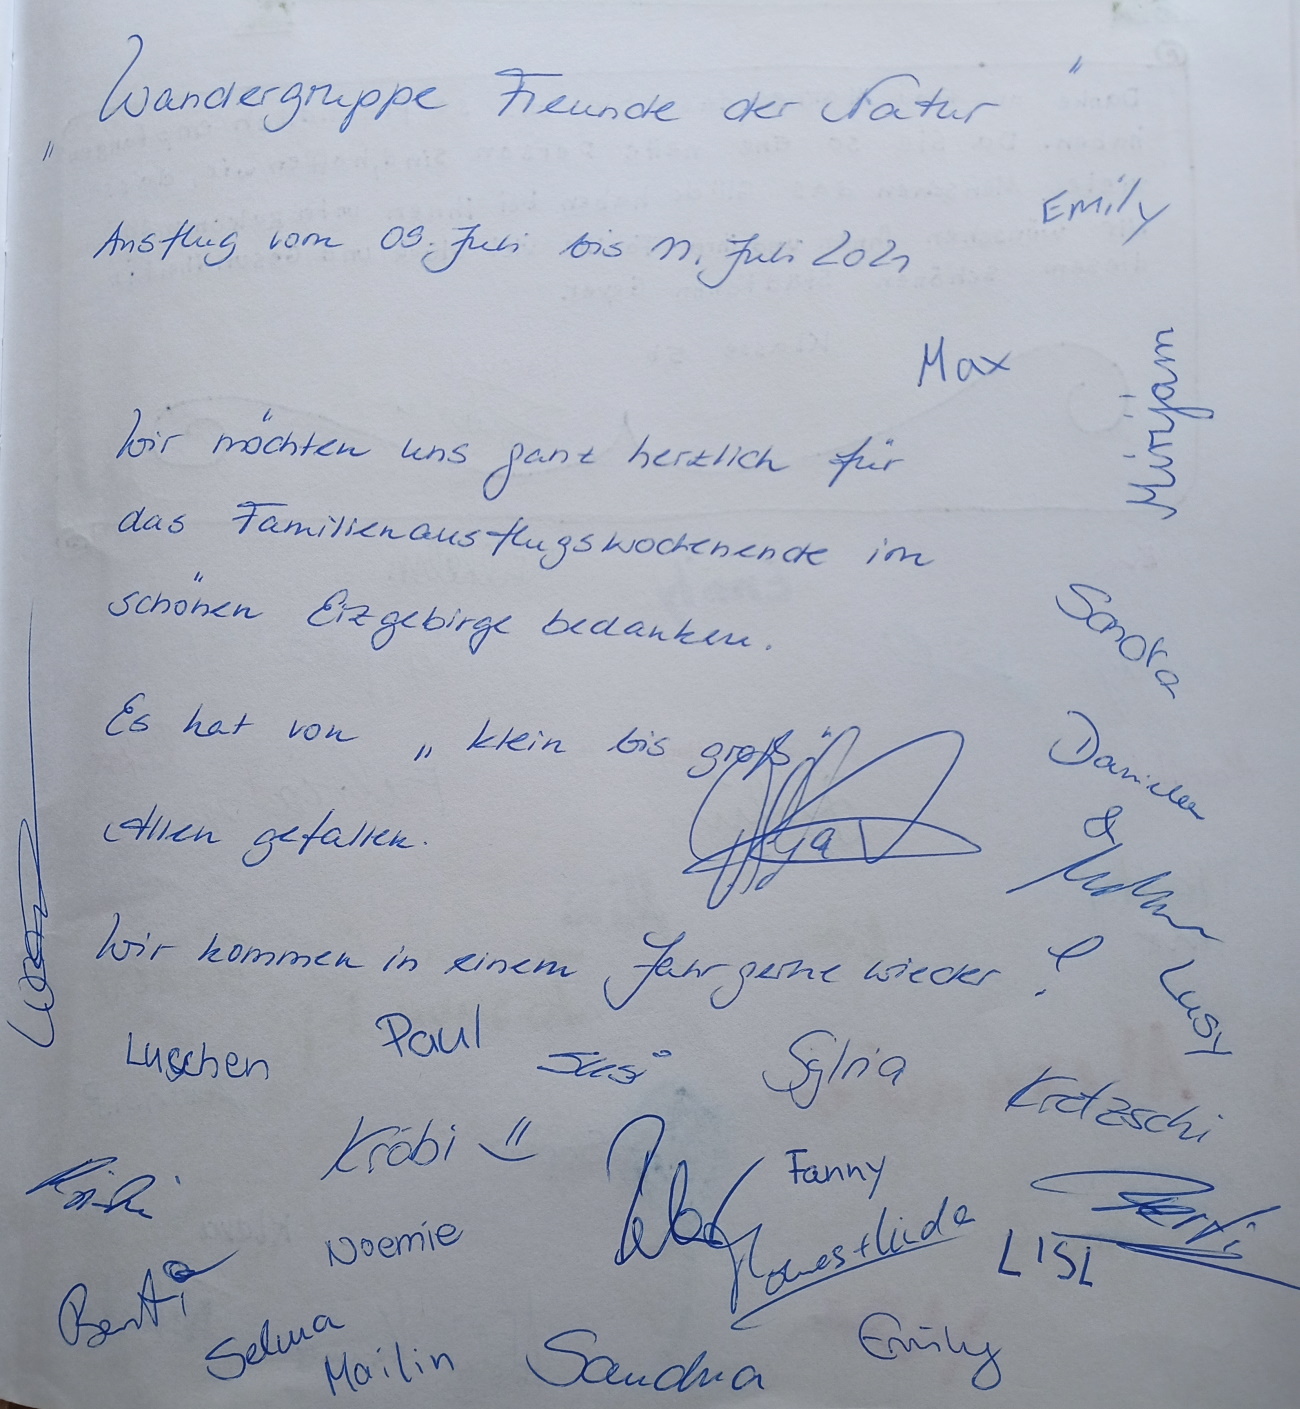 „Wandergruppe Freunde der Natur"
Ausflug vom 09. Juli bis 11. Juli 2021
Emily
Max
Mirijam
Wir möchten uns ganz herzlich für
das Familienausflugswochenende im
schönen Erzgebirge bedanken.
Es hat von „klein bis groß"
Allen gefallen.
Daniela
&
Wir kommen in einem Jahr gerne wieder!
Lusy
Paul
Susi
Sylvia
Kretzschi
Kröbi
Fanny
Noemie
LISL
Selma
Mailin
Sandra
Emily